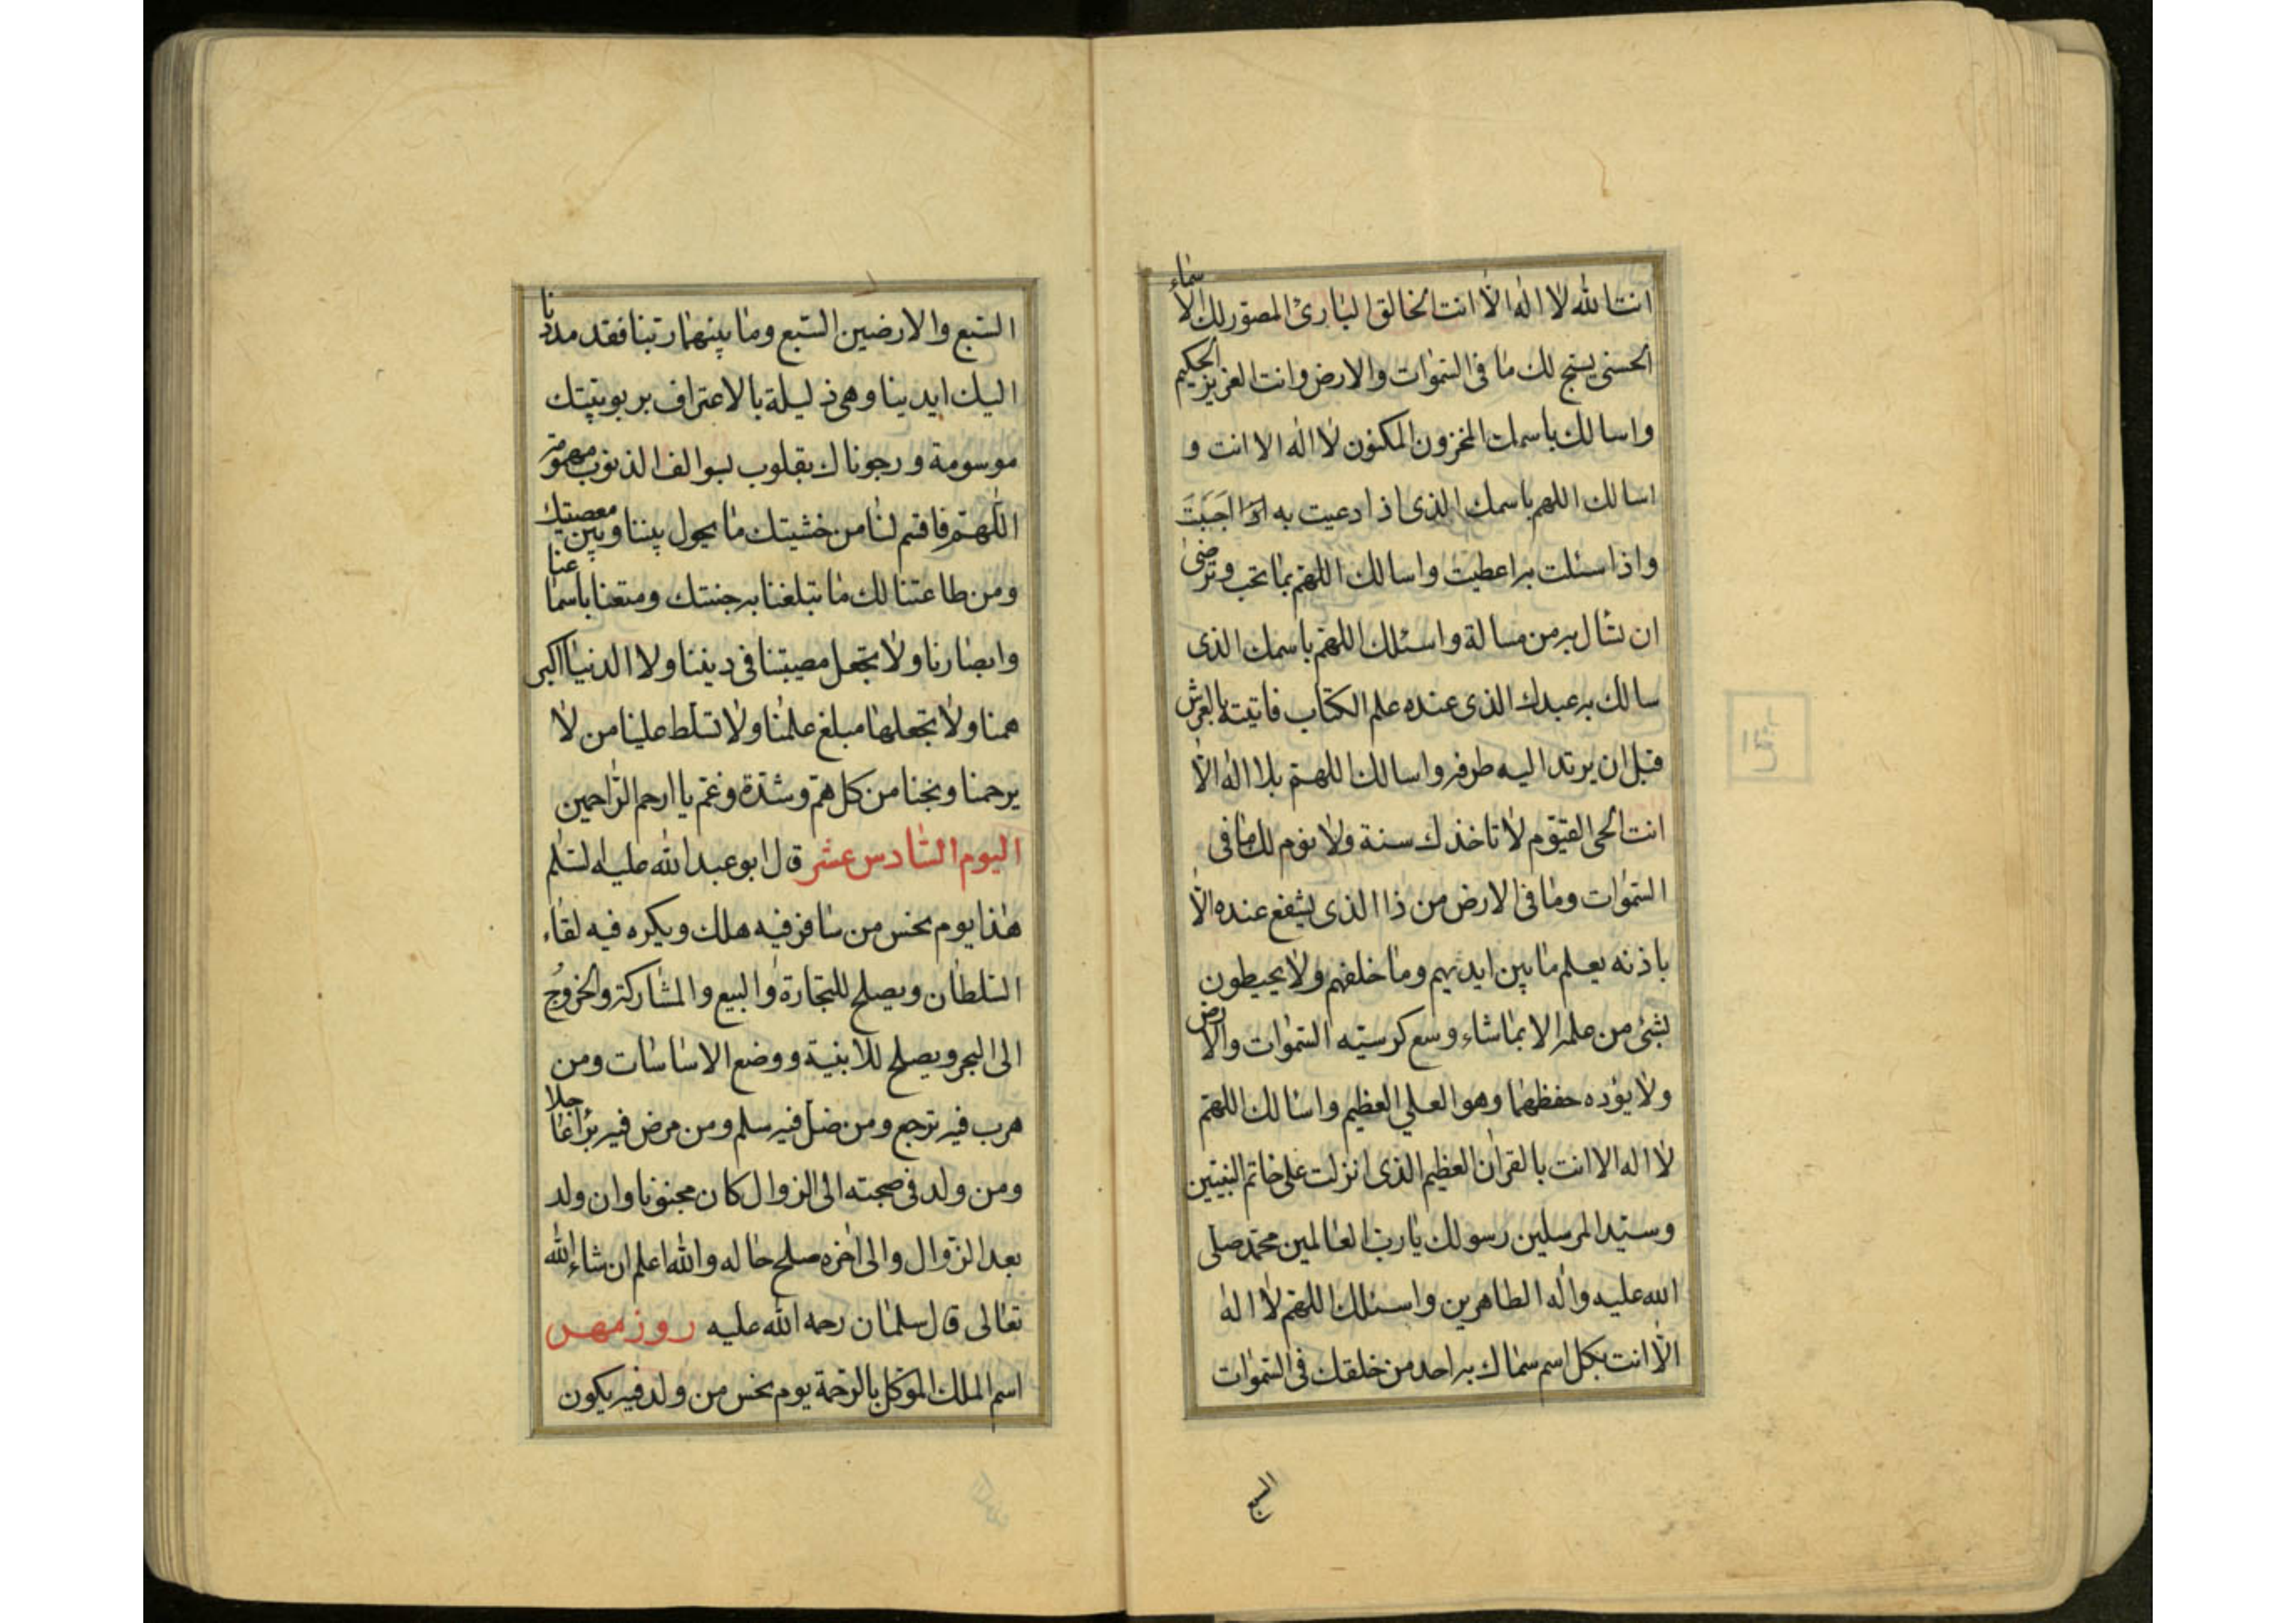 انت الله لا اله الا انت الخالق البارئ المصور لك الاسماء
الحسنى يسبح لك ما فى السموات والارض وانت العزيز الحكيم
واسالك باسمك المخزون المكنون لا اله الا انت و
اسالك اللهم باسمك الذى اذا دعيت به اجبت
واذا سئلت به اعطيت واسالك اللهم بما تحب وترضى
ان تسال به من مسالة واسئلك اللهم باسمك الذى
سالك به عبدك الذى عنده علم الكتاب فاتيته بالعرش
قبل ان يرتد اليه طرفه واسالك اللهم بلا اله الا
انت الحى القيوم لا تاخذك سنة ولا نوم لك ما فى
السموات وما فى الارض من ذا الذى يشفع عنده الا
باذنه يعلم ما بين ايديهم وما خلفهم ولا يحيطون
بشئ من علمه الا بما شاء وسع كرسيه السموات والارض
ولا يؤده حفظهما وهو العلي العظيم واسالك اللهم
لا اله الا انت بالقران العظيم الذى انزلت على خاتم النبيين
وسيد المرسلين رسولك يا رب العالمين محمد صلى
الله عليه واله الطاهرين واسئلك اللهم لا اله
الا انت بكل اسم سماك به احد من خلقك فى السموات
السبع
السبع والارضين السبع وما بينهما ربنا فقد مددنا
اليك ايدينا وهى ذليلة بالاعتراف بربوبيتك
موسومة ورجوناك بقلوب لسوالف الذنوب مهمومة
اللهم فاقسم لنا من خشيتك ما يحول بيننا وبين معصيتك
ومن طاعتنا لك ما تبلغنا به جنتك ومتعنا باسماعنا
وابصارنا ولا تجعل مصيبتنا فى ديننا ولا الدنيا اكبر
همنا ولا تجعلها مبلغ علمنا ولا تسلط علينا من لا
يرحمنا ونجنا من كل هم وشدة وغم يا ارحم الراحمين
اليوم السادس عشر قال ابو عبد الله عليه السلم
هذا يوم نحس من سافر فيه هلك ويكره فيه لقاء
السلطان ويصلح للتجارة والبيع والمشاركة والخروج
الى البحر ويصلح للابنية ووضع الاساسات ومن
هرب فيه ترجع ومن ضل فيه سلم ومن مرض فيه برا عاجلا
ومن ولد فى صبحته الى الزوال كان مجنونا وان ولد
بعد الزوال والى اخره صلح حاله والله اعلم ان شاء الله
تعالى قال سلمان رحمه الله عليه روز مهر
اسم الملك الموكل بالرحمة يوم نحس من ولد فيه يكون